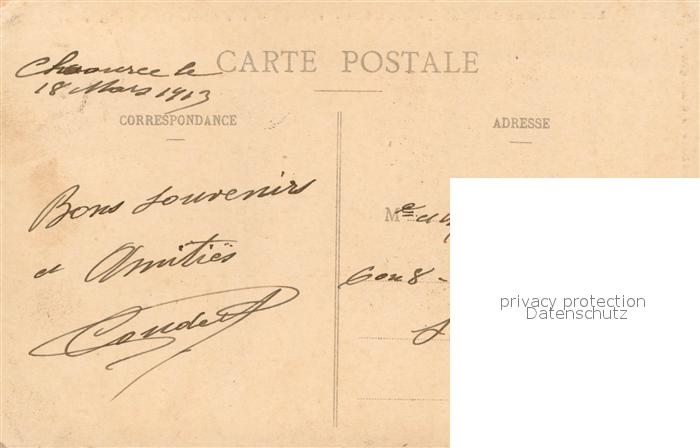 Chaource le
18 Mars 1913
CARTE POSTALE
CORRESPONDANCE
ADRESSE
Bons souvenirs
et Amitiés
M
privacy protection
Datenschutz